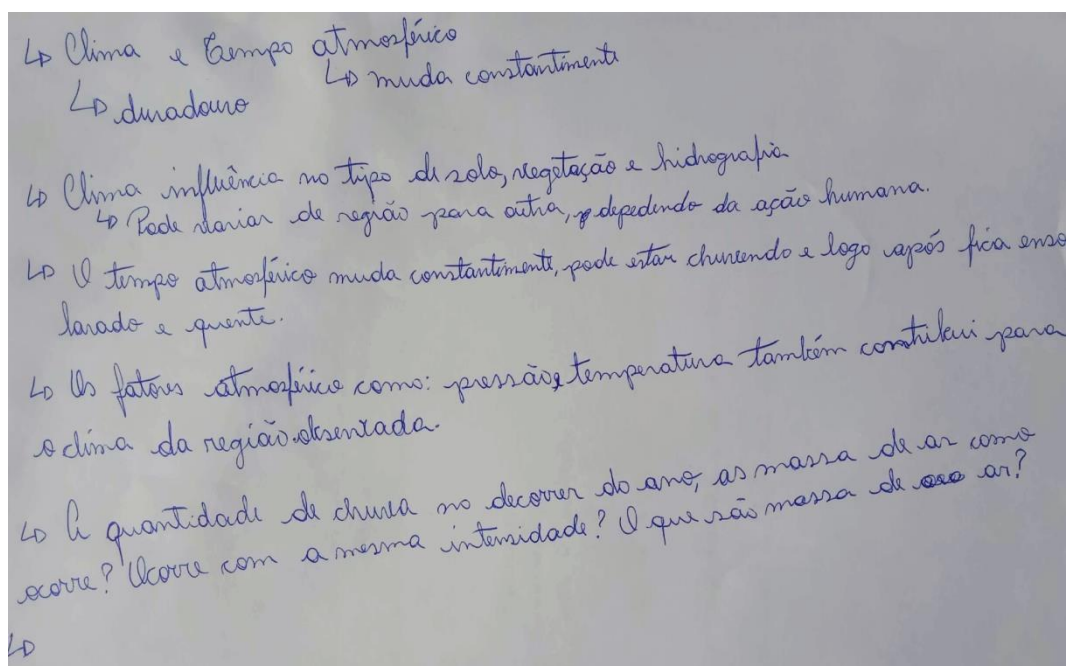 ↳ Clima e Tempo atmosférico
↳ muda constantimente
↳ duradouro
↳ Clima influência no tipo de solo, vegetação e hidrografia
↳ Pode variar de região para outra, depedendo da ação humana.
↳ O tempo atmosférico muda constantimente, pode estar chuvendo e logo após fica enso
larado e quente.
↳ Os fatores atmosférico como: pressão, temperatura também contribui para
o clima da região observada.
↳ A quantidade de chuva no decorrer do ano, as massa de ar como
ocorre? Ocorre com a mesma intensidade? O que são massa de ar?
↳